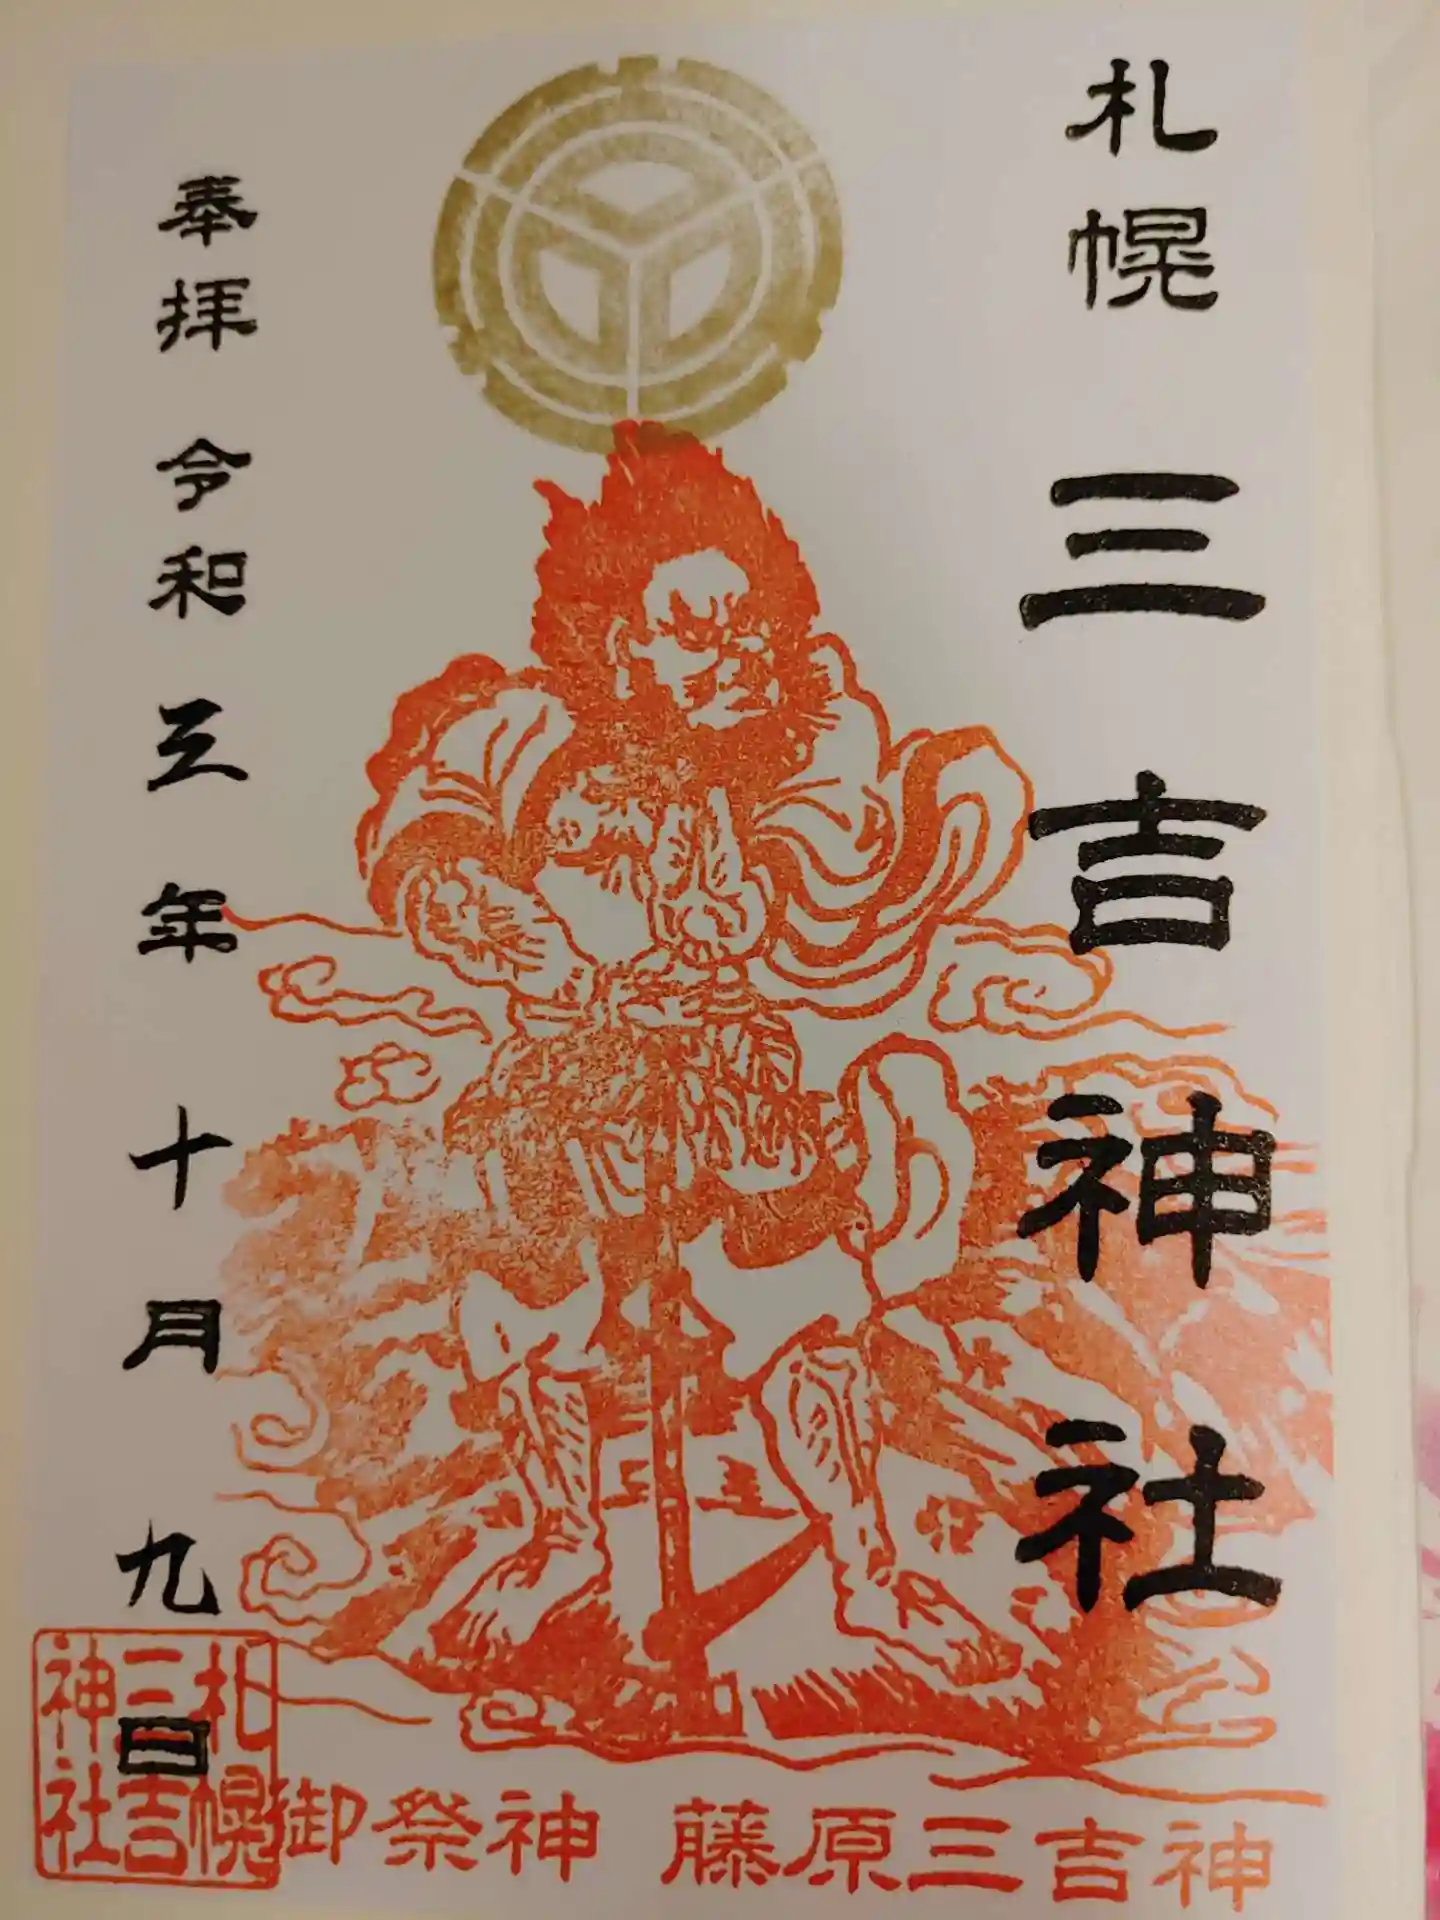 札幌 三吉神社
奉拝 令和三年十月九日
札幌三吉神社
御祭神 藤原三吉神